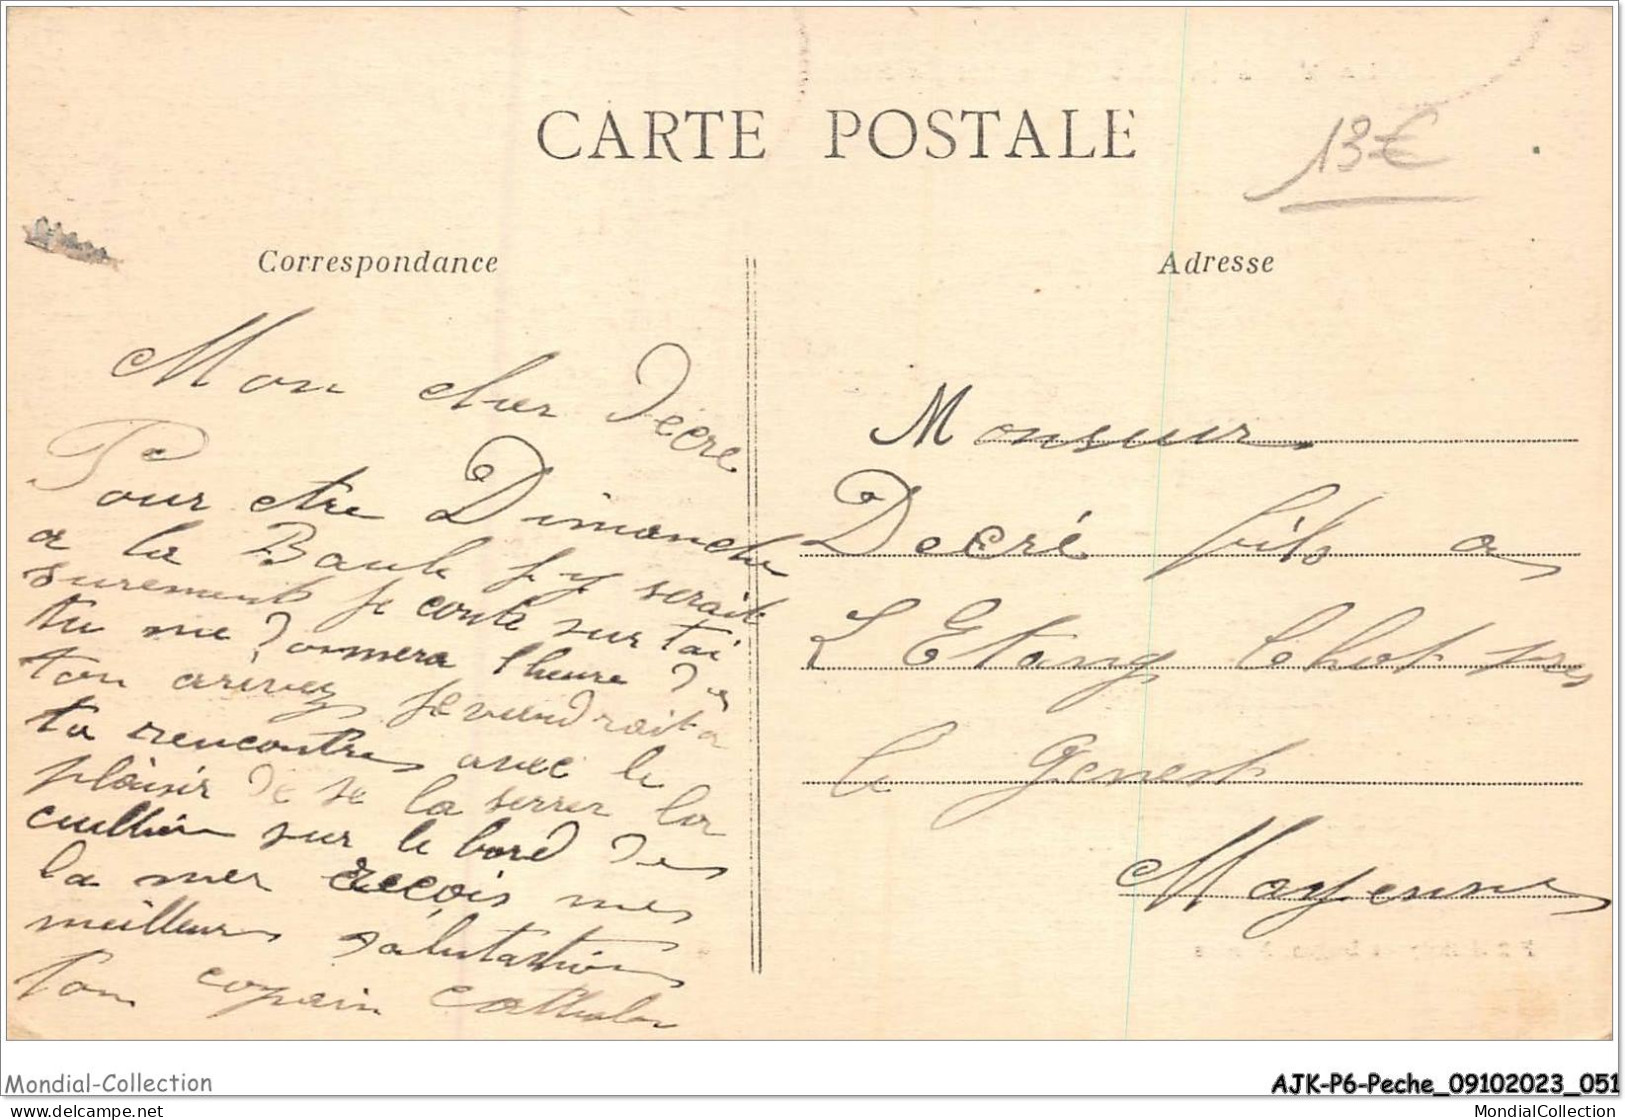 CARTE POSTALE
13€
Correspondance
Adresse
Mon cher Décré
Pour etre Dimanche
a la Baule j y serait
surement je conte sur tai
tu me donnera l heure de
ton arivez je viendrait a
ta rencontre avec le
plaisir de se la serrer la
cuillière sur le bord des
la mer recois mes
meilleurs salutastions
Ton copain
Monsieur
Decré fils a
L Etang Chot pres
le Genest
Mayenne
Mondial-Collection
AJK-P6-Peche_09102023_051
www.delcampe.net
MondialCollection